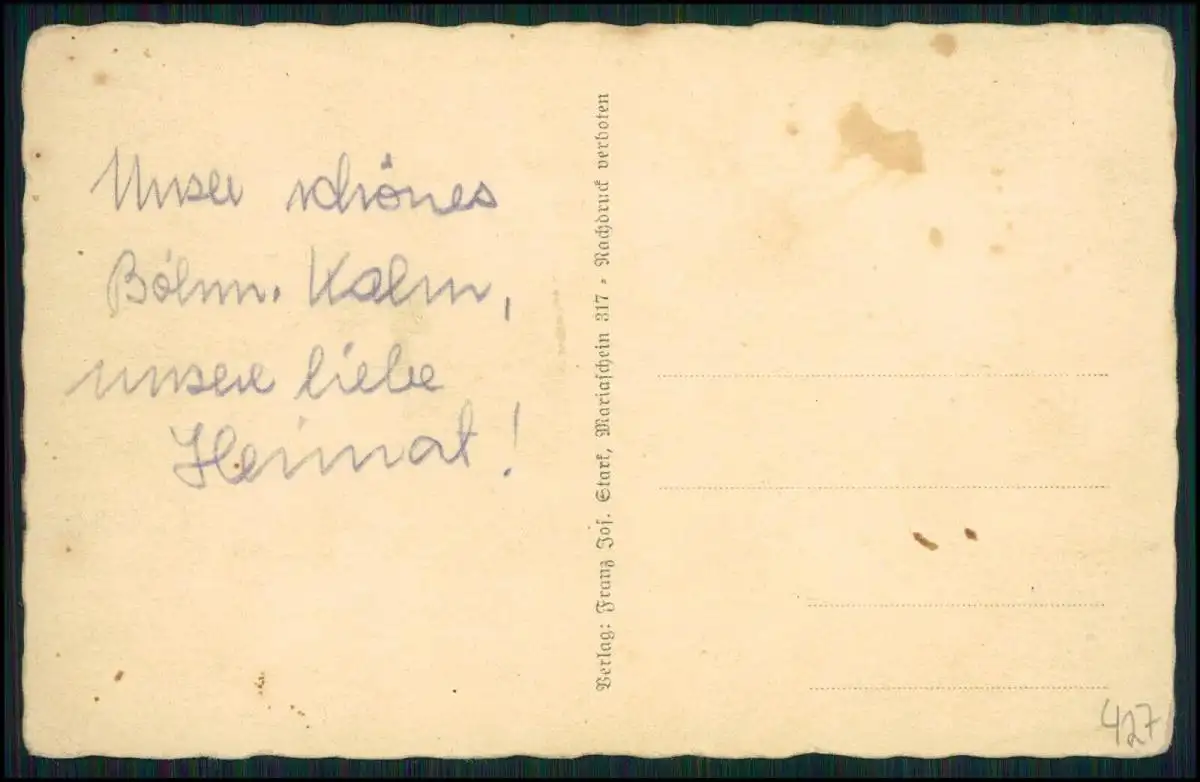 Unser schönes
Böhm. Kahn,
unsere liebe
Heimat!
Verlag: Franz Jos. Stark, Mariaschein 317 - Nachdruck verboten
427